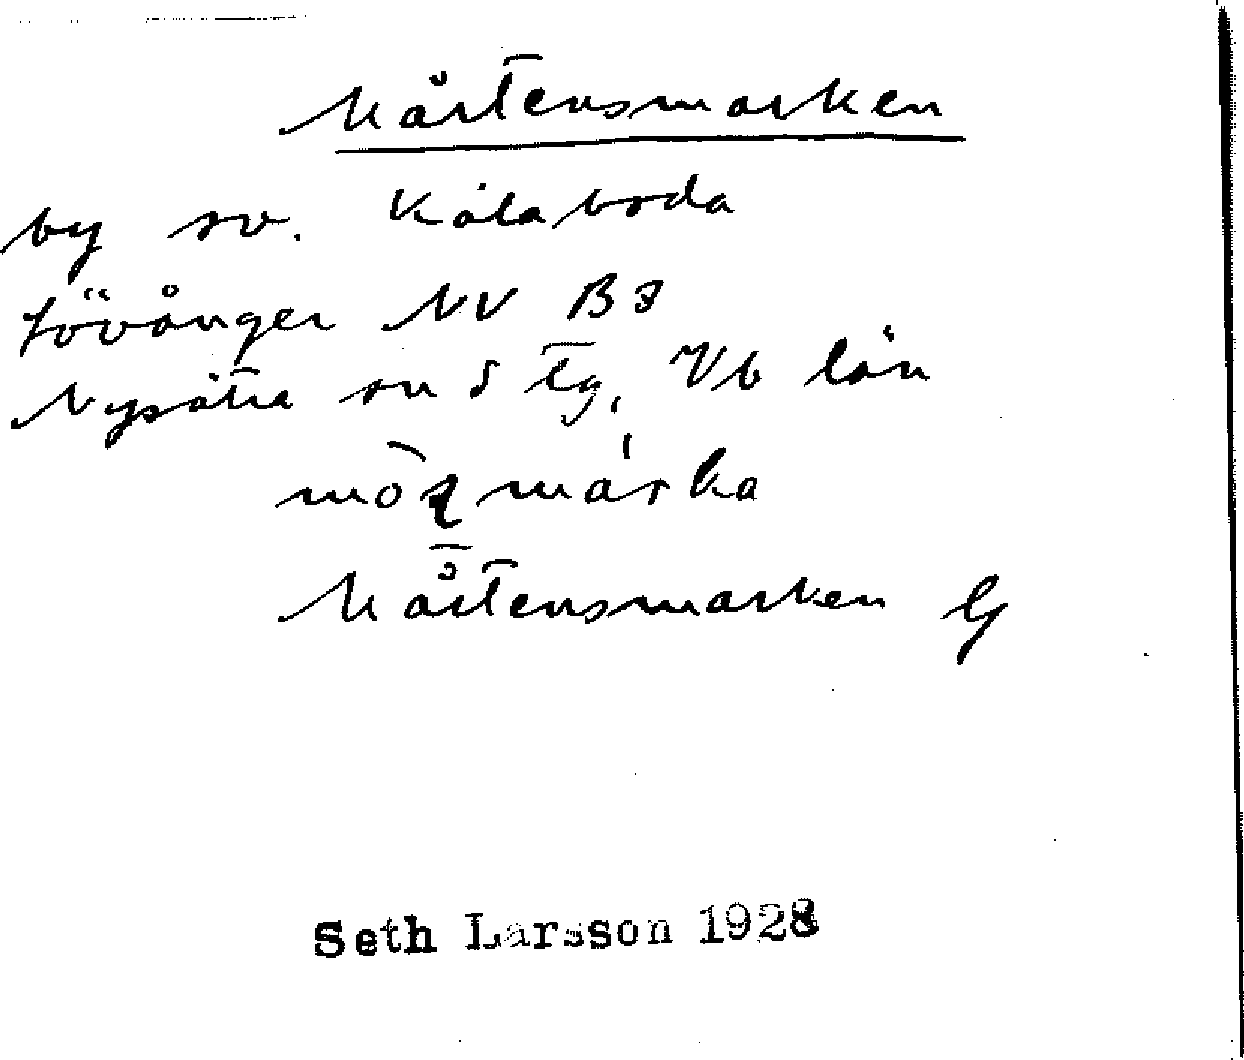 Mårtensmarken
by sv. Kålaboda
Lövånger NV B8
Nysätra sn S tg, Vb län
Mårtensmarken G
Seth Larsson 1928